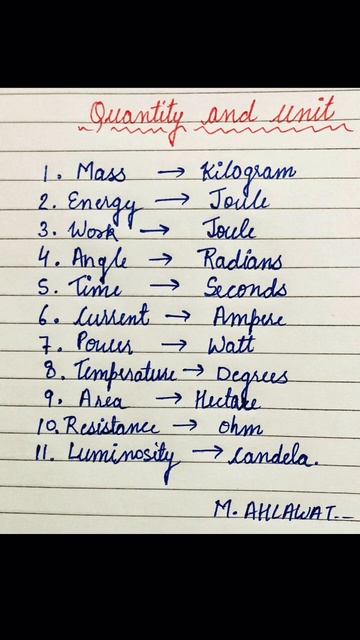 Quantity and unit
1. Mass → Kilogram
2. Energy → Joule
3. Work → Joule
4. Angle → Radians
5. Time → Seconds
6. Current → Ampere
7. Power → Watt
8. Temperature → Degrees
9. Area → Hectare
10. Resistance → ohm
11. Luminosity → Candela.
M. AHLAWAT.--